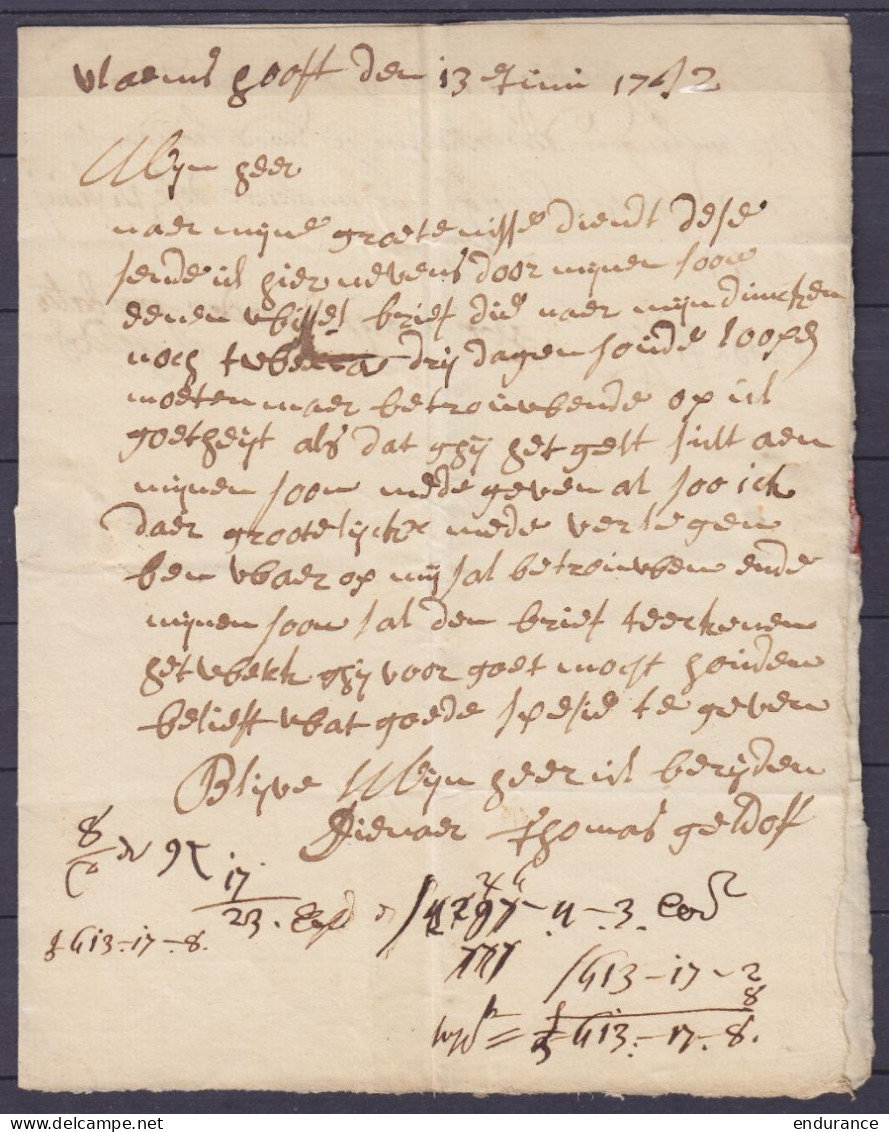 vlaems hooft den 13 Juni 1762
Mijn heer
naer mijne groetenisse diendt dese
sende ick hier nevens door mijnen soon
eenen wissel brief die naer mijn dinckken
noch twee drij dagen soude loopen
moeten maer betrouwende op ul
goetheijt als dat ghij het gelt sult aen
mijnen soon mede geven al soo ick
daer grootelijckx mede verlegen
ben waer op mij sal betrouwen ende
mijnen soon sal den brief teerkenen
het welck ghij voor goet mocht houden
belieft wat goede spesie te geven
Blijve Mijn heer ul berijden
Dienaer Thomas geldoff
8
17
23.
4297-4-3
413-17-8.
413-17-2
8
413-17-8.
endurance